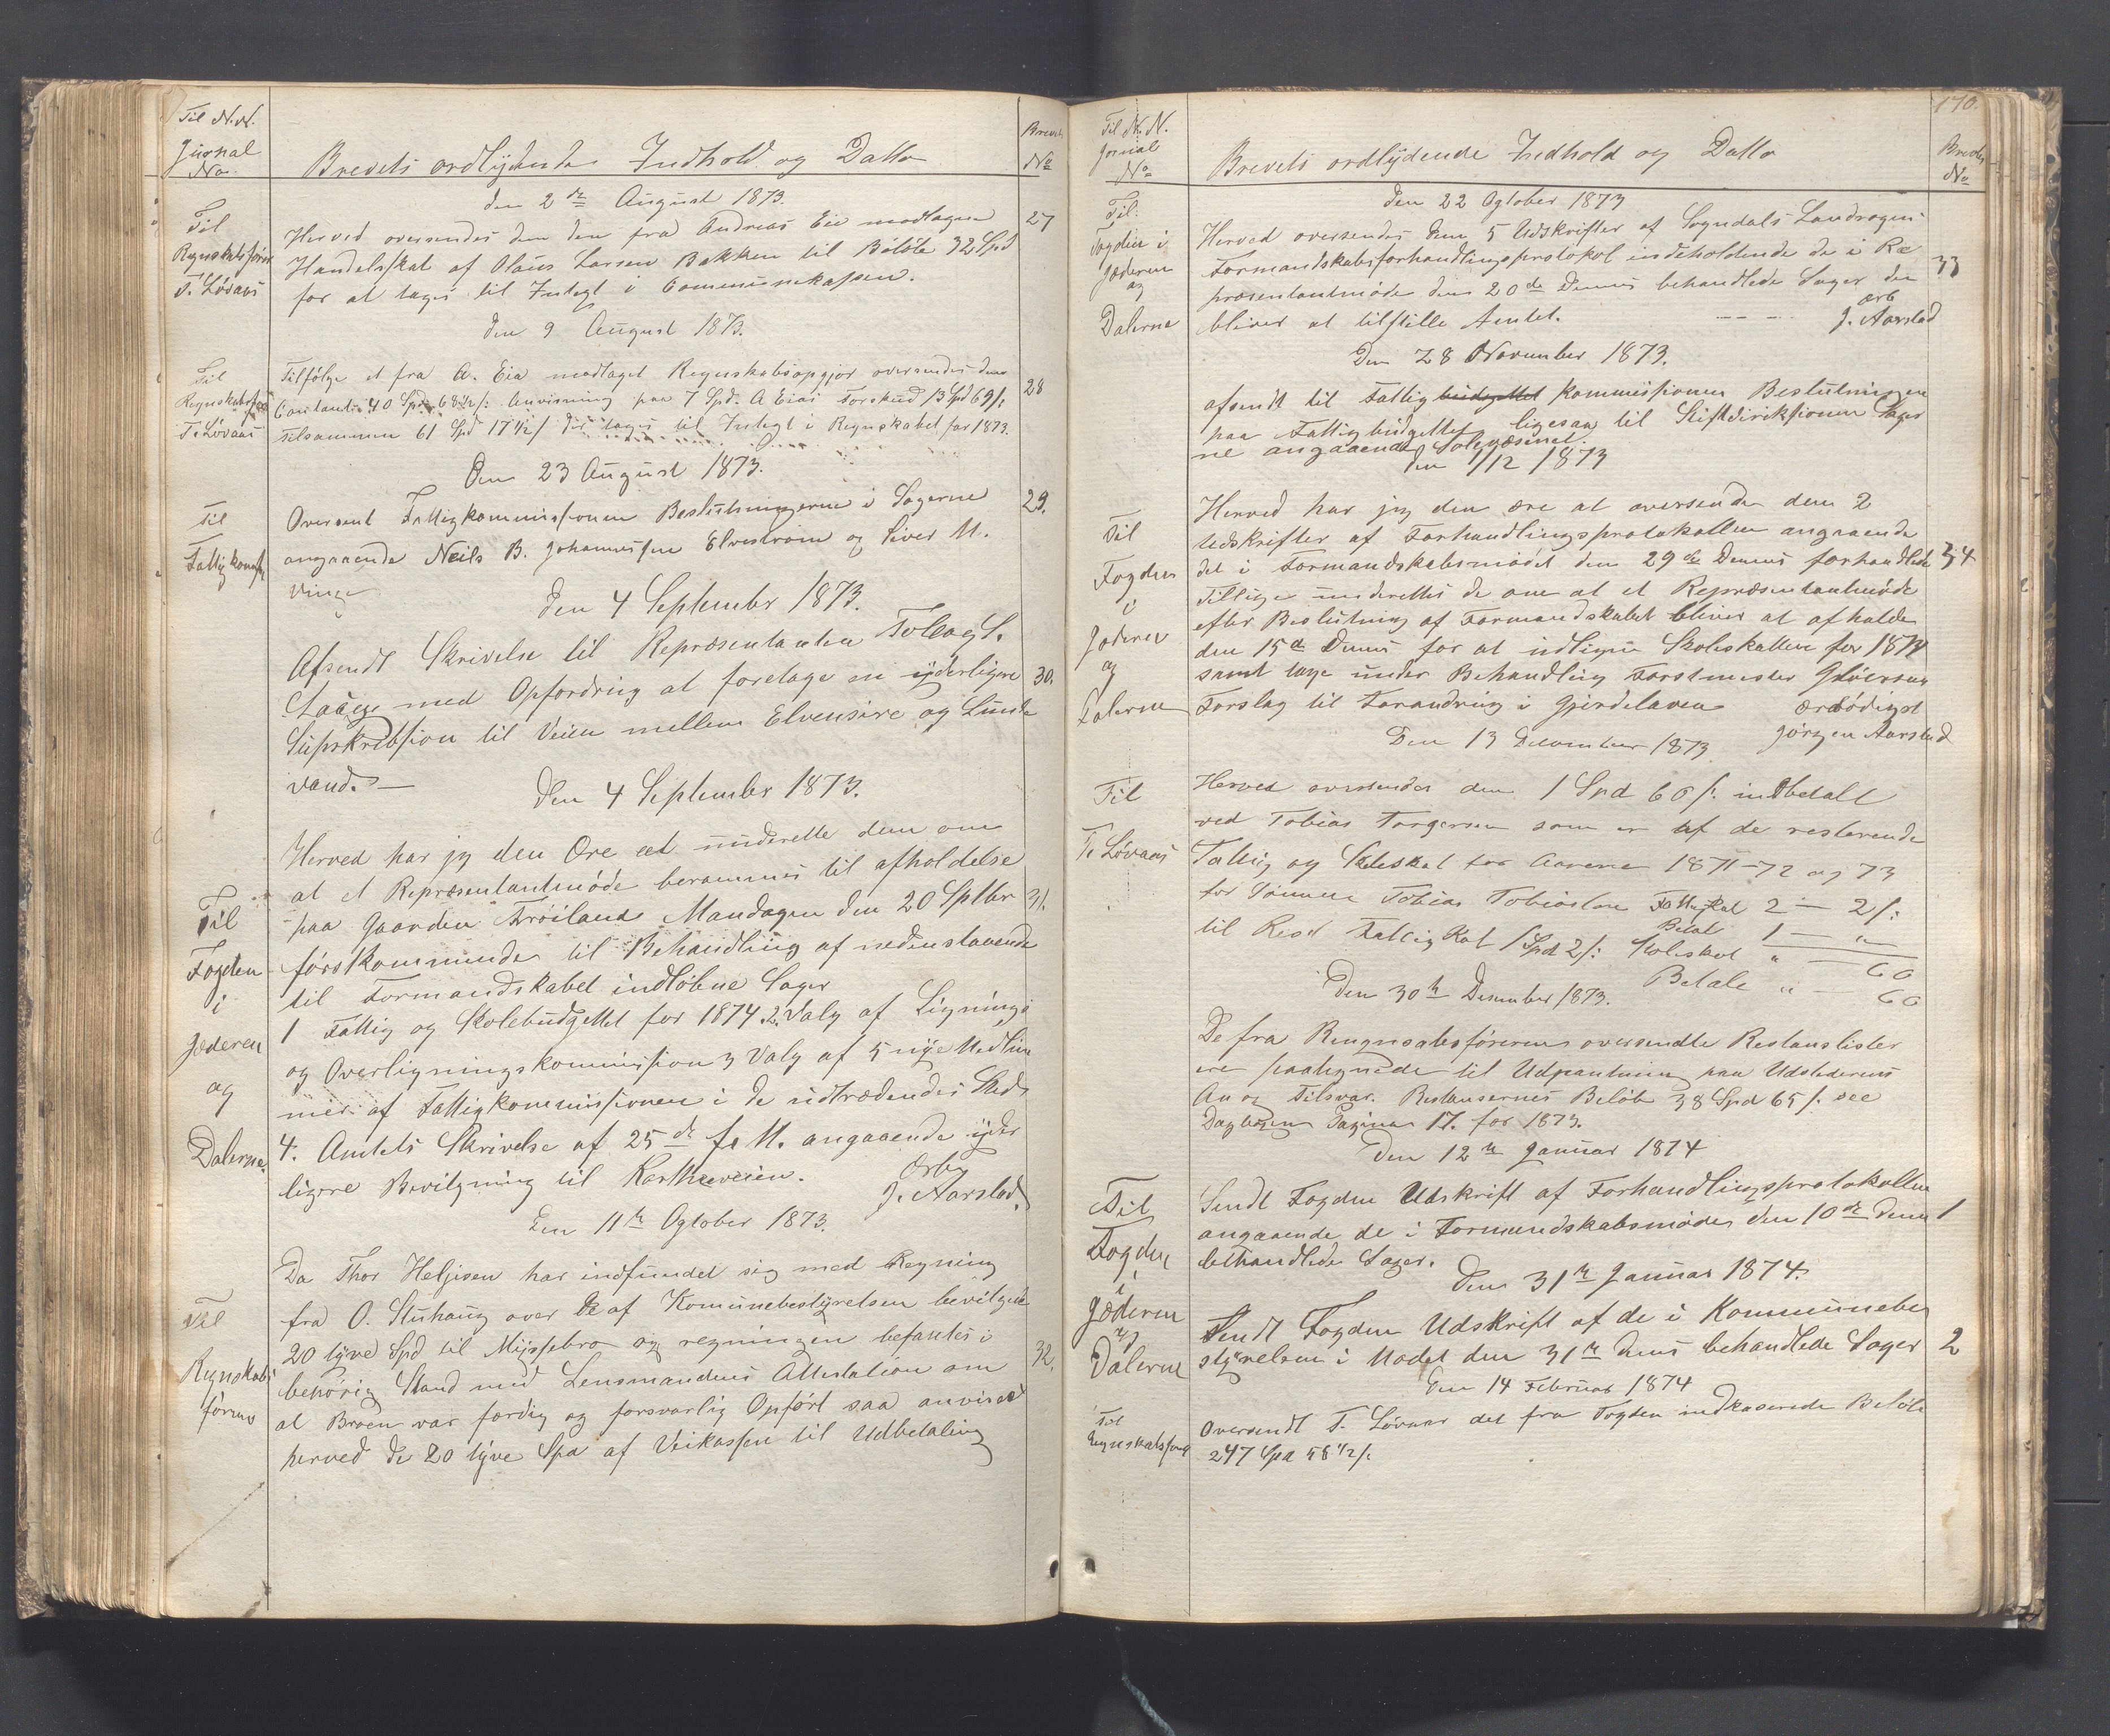 Til N.N.
Jurnal
No
Brevets ordlydende Indhold og Datto
Brevets
No
den 2de August 1873.
Til
Regnskabsfører
T. Løvaas
Herved oversendes dem den fra Andreas Eie modtagene
27
Handelsskat af Olaus Larsen Bakken til Beløb 32 Spd
for at tages til Integt i Communekassen.
den 9 August 1873.
Til
Regnskabsfører
T. Løvaas
Tilfølge et fra A. Eia modtaget Regnskabsopgjør oversendes dem
28
Contante 40 Spd 68½ /: Anvisning paa 7 Spd. A Eias Forskud 13 Spd 69 /:
tilsammen 61 Spd 17½ / der tages til Integt i Regnskabet for 1873.
Den 23 August 1873.
Til
Fattigkomms
Oversent Fattigkommissionen Beslutningerne i Sagerne
29.
angaaende Neils B. Johannessen Elvestrøm og Siver M.
Vinge
Den 4 September 1873.
Afsendt Skrivelse til Repræsentanten Tolleag S.
Laage med Opfordring at foretage en yderligere
30.
Supskribsion til Veien mellem Elvensire og Lunde
vand. —
Den 4 September 1873.
Til
Fogden
i
Jæderen
og
Dalerne.
Herved har jeg den Ære at underette dem om
at et Repræsentantmøde berammes til afholdelse
paa Gaarden Frøiland Mandagen den 20 Sptbr
31.
førstkommende til Behandling af nedenstaaende
til Formandskabet indløbne Sager
1 Fattig og Skolebudgettet for 1874. 2. Valg af Lignings
og Overligningskommission 3 Valg af 5 nye Medlem
mer af Fattigkommissionen i de udtrædendes Sted
4. Amtets Skrivelse af 25de f. M. angaaende yder
ligere Bevilgning til Rartheveien.
Ærbg
J. Aarstad
Den 11te Ogtober 1873.
Til
Regnskabs
føreren
Da Thor Heljesen har indfundet sig med Regning
fra O. Stuhaug over de af Komunebestyrelsen bevilgede
20 tyve Spd til Myssebro og regningen befantes i
32.
behørig Stand med Lensmandens Attestation om
at Broen var færdig og forsvarlig Opført saa anvises
herved de 20 tyve Spd af Veikassen til Udbetaling
170.
Til N. N.
Jornal
No
Brevets ordlydende Indhold og Datto
Brevets
No
Den 22 Ogtober 1873
Til
Fogden i
Jæderen
og
Dalerne
Herved oversendes dem 5 Udskrifter af Sogndals Landsogns
Formandskabsforhandlingsprotokol indeholdende de i Re
33
præsentantmøde den 20de Dennes behandlede Sager der
bliver at tilstille Amtet.
ærb
J. Aarstad
Den 28 November 1873.
afsendt til Fattig budgettet kommissionen Beslutningen
paa Fattigbudgettet ligesaa til Stiftdireksionen Sager
ne angaaende Solegvæsenet.
den 1/12 1873
Til
Fogden
i
Jæderen
og
Dalerne
Herved har jeg den ære at oversende dem 2
Udskrifter af Forhandlingsprotokollen angaaende
det i Formandskabsmødet den 29de Dennes forhandlede
34
Tillige underettes de om at et Repræsentantmøde
efter Beslutning af Formandskabet bliver at afholde
den 15de Dennes for at udligne Skoleskatten for 1874
samt tage under Behandling Forstmester Gløersens
Forslag til Forandring i Gjerdeloven
ærbødigst
Jørgen Aarstad
Den 13 December 1873
Til
T. Løvaas
Herved oversendes dem 1 Spd 60 /: indbetalt
ved Tobias Torgersen som er af de resterende
Fattig og Skoleskat for Aarene 1871–72 og 73
for Sønnen Tobias Tobiassen Fattigskat 2 — 2 /:
Betal 1 — "
til Rest Fattigskat 1 Spd 2 /: Skoleskat " — 60
Betale " — 60
Den 30te Desember 1873.
De fra Regnskabsføreren oversendte Restanslister
ere paategnede til Udpantning paa Udstederens
An og Tilsvar. Restansernes Beløb 38 Spd 65 /: see
Dagbogens Pagina 17. for 1873.
Den 12te Januar 1874
Til
Fogden
i
Jæderen
og
Dalerne
Sendt Fogden Udskrift af Forhandlingsprotokollen
angaaende de i Formandskabsmøde den 10de dennes
1
behandlede Sager.
Den 31te Januar 1874.
Sendt Fogden Udskrift af de i Kommunebe
styrelsen i Modet den 31te dens behandlede Sager
2
Den 14 Februar 1874
Til
Regnskabsfører
Oversendt T. Løvaas det fra Fogden indkaserede Beløb
247 Spd 58½ /: